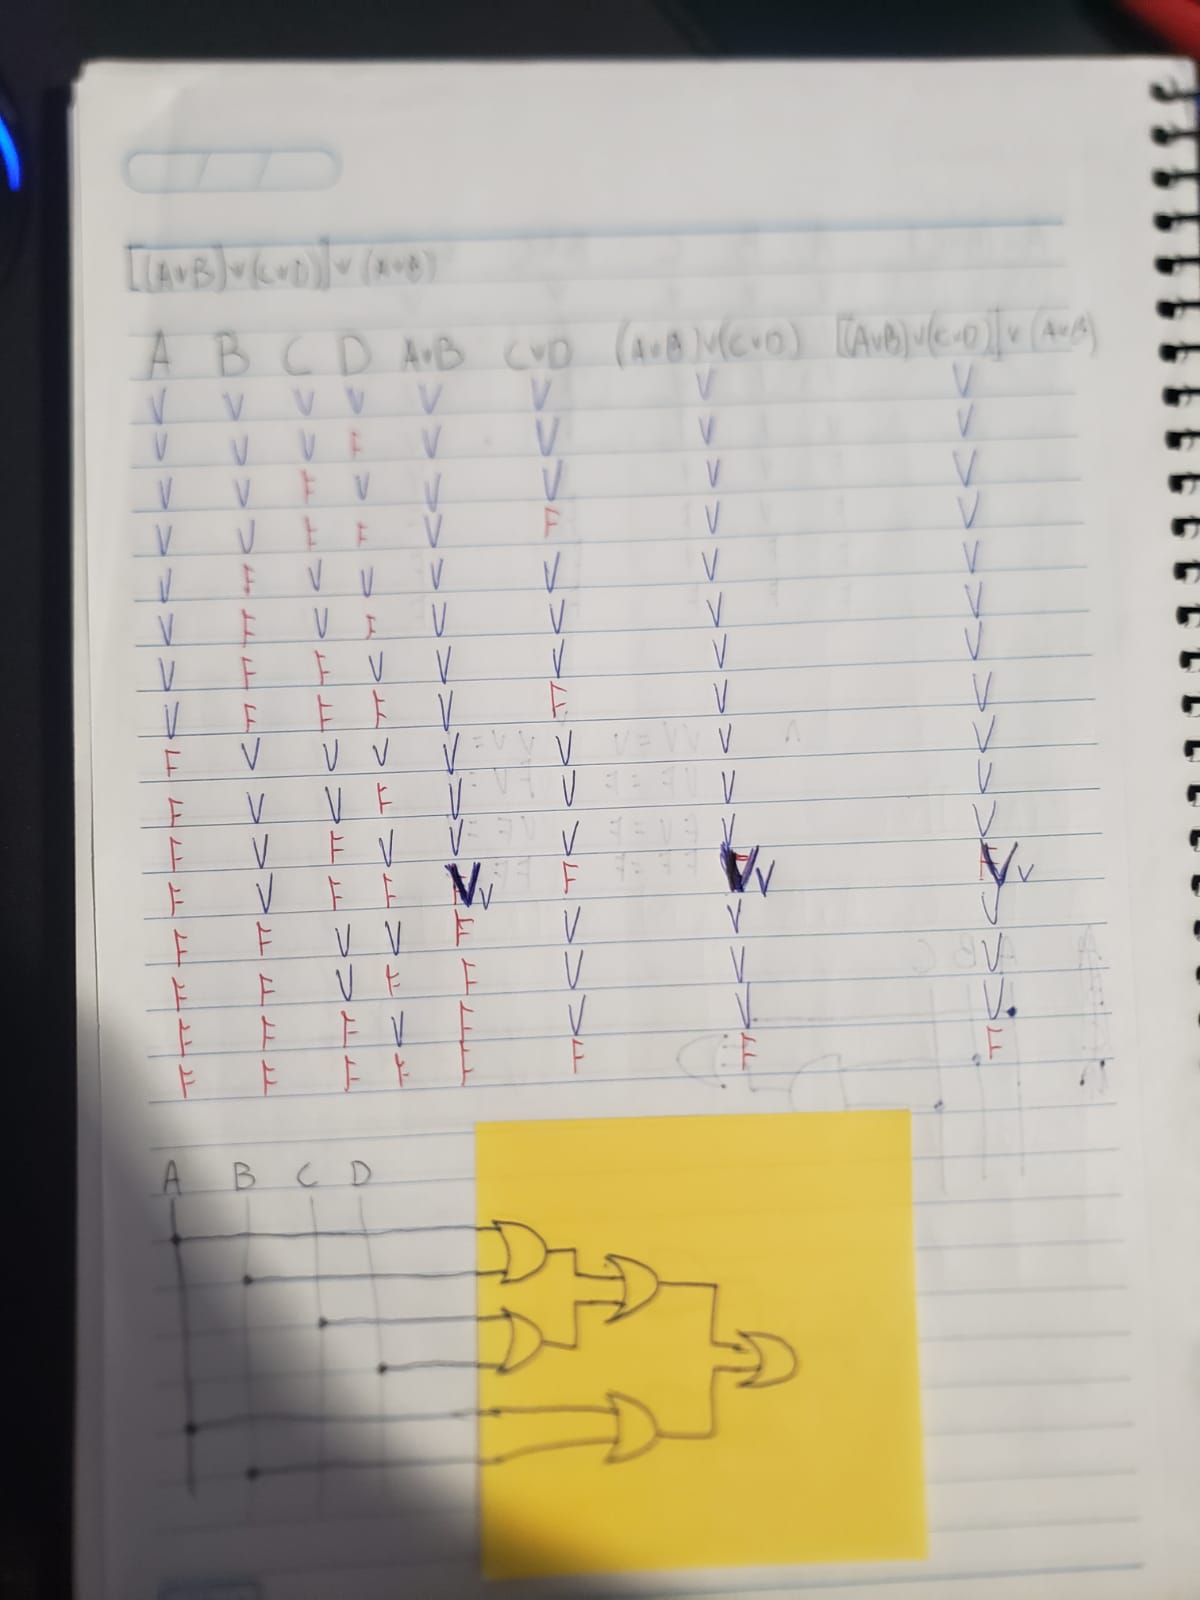 [(AvB)v(CvD)]v(AvB)
A B C D AvB CvD (AvB)v(CvD) [(AvB)v(CvD)]v(AvB)
V V V V V V V V
V V V F V V V V
V V F V V V V V
V V F F V F V V
V F V V V V V V
V F V F V V V V
V F F V V V V V
V F F F V F V V
F V V V V V V V
F V V F V V V V
F V F V V V V V
F V F F V V F V V V V
F F V V F V V V
F F V F F V V V
F F F V F V V V
F F F F F F F F
A B C D